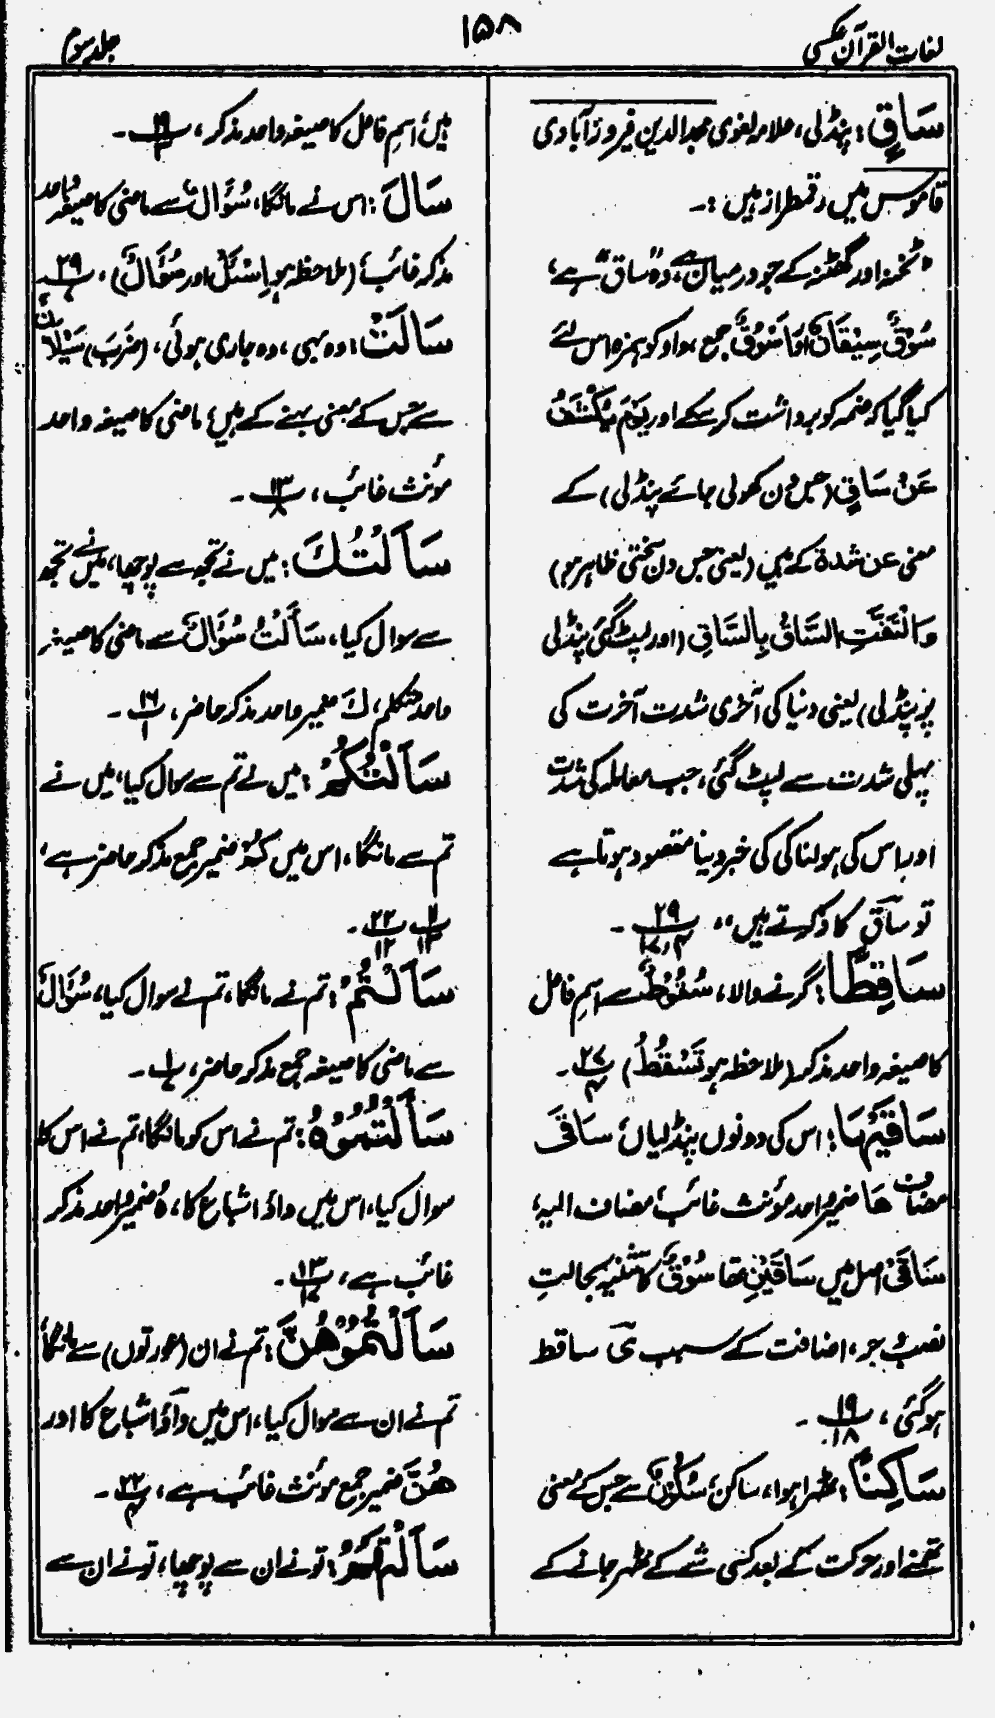 لغات القرآن عکسی
۱۵۸
جلد سوم
سَاقٍ: پنڈلی، علامہ لغوی مجدالدین فیروزآبادی
قاموس میں رقمطراز ہیں :۔
"ٹخنہ اور گھٹنہ کے جو درمیان ہے، وہ "ساق" ہے،
سُوْقٌ سِیْقَانٌ اور اَسْوُقٌ جمع، واو کو ہمزہ اس لئے
کیا گیا کہ ضمہ کو برداشت کر سکے اور یَوْمَ یُکْشَفُ
عَنْ سَاقٍ (جس دن کھولی جائے پنڈلی) کے
معنی عن شدۃ کے ہیں (یعنی جس دن سختی ظاہر ہو)
وَالْتَفَّتِ السَّاقُ بِالسَّاقِ (اور لپٹ گئی پنڈلی
پر پنڈلی) یعنی دنیا کی آخری شدت آخرت کی
پہلی شدت سے لپٹ گئی، جب معاملہ کی شدت
اور اس کی ہولناکی کی خبر دینا مقصود ہوتا ہے
تو ساق کا ذکر کرتے ہیں"، ۲۹ / ۴، ۱۷ ۔
سَاقِطًا: گرنے والا، سُقُوْطٌ سے اسمِ فاعل
کا صیغہ واحد مذکر (ملاحظہ ہو تَسْقُطُ) ۲۷ / ۴ ۔
سَاقَیْهَا: اس کی دونوں پنڈلیاں، سَاقَیْ
مضاف ھَا ضمیر واحد مؤنث غائب مضاف الیہ،
سَاقَیْ اصل میں سَاقَیْنِ تھا سُوْقٌ کا تثنیہ بحالتِ
نصب و جر، اضافت کے سبب ی ساقط
ہو گئی، ۱۹ / ۱۸ ۔
سَاکِنًا: ٹھہرا ہوا، ساکن، سُکُوْنٌ سے جس کے معنی
تھمنے اور حرکت کے بعد کسی شے کے ٹھہر جانے کے
ہیں، اسمِ فاعل کا صیغہ واحد مذکر، ۱۹ / ۳ ۔
سَاَلَ: اس نے مانگا، سُؤَالٌ سے ماضی کا صیغہ واحد
مذکر غائب (ملاحظہ ہو اِسْئَلْ اور سُؤَالٌ)، ۲۹ / ۷
سَالَتْ: وہ بہی، وہ جاری ہوئی، (ضَرَبَ) سَیْلَانٌ
سے جس کے معنی بہنے کے ہیں، ماضی کا صیغہ واحد
مؤنث غائب، ۱۳ / ۸ ۔
سَاَلْتُكَ: میں نے تجھ سے پوچھا، میں نے تجھ
سے سوال کیا، سَاَلْتُ سُؤَالٌ سے ماضی کا صیغہ
واحد متکلم، كَ ضمیر واحد مذکر حاضر، ۱۶ / ۱ ۔
سَاَلْتُكُمْ: میں نے تم سے سوال کیا، میں نے
تم سے مانگا، اس میں کُمْ ضمیر جمع مذکر حاضر ہے،
۱۱ / ۱۳، ۲۲ / ۱۲ ۔
سَاَلْتُمْ: تم نے مانگا، تم نے سوال کیا، سُؤَالٌ
سے ماضی کا صیغہ جمع مذکر حاضر، ۱ / ۷ ۔
سَاَلْتُمُوْهُ: تم نے اس کو مانگا، تم نے اس کا
سوال کیا، اس میں واؤ اشباع کا، ہُ ضمیر واحد مذکر
غائب ہے، ۱۳ / ۱۷ ۔
سَاَلْتُمُوْهُنَّ: تم نے ان (عورتوں) سے مانگا،
تم نے ان سے سوال کیا، اس میں واؤ اشباع کا اور
هُنَّ ضمیر جمع مؤنث غائب ہے، ۲۲ / ۴ ۔
سَاَلْتَهُمْ: تو نے ان سے پوچھا، تو نے ان سے